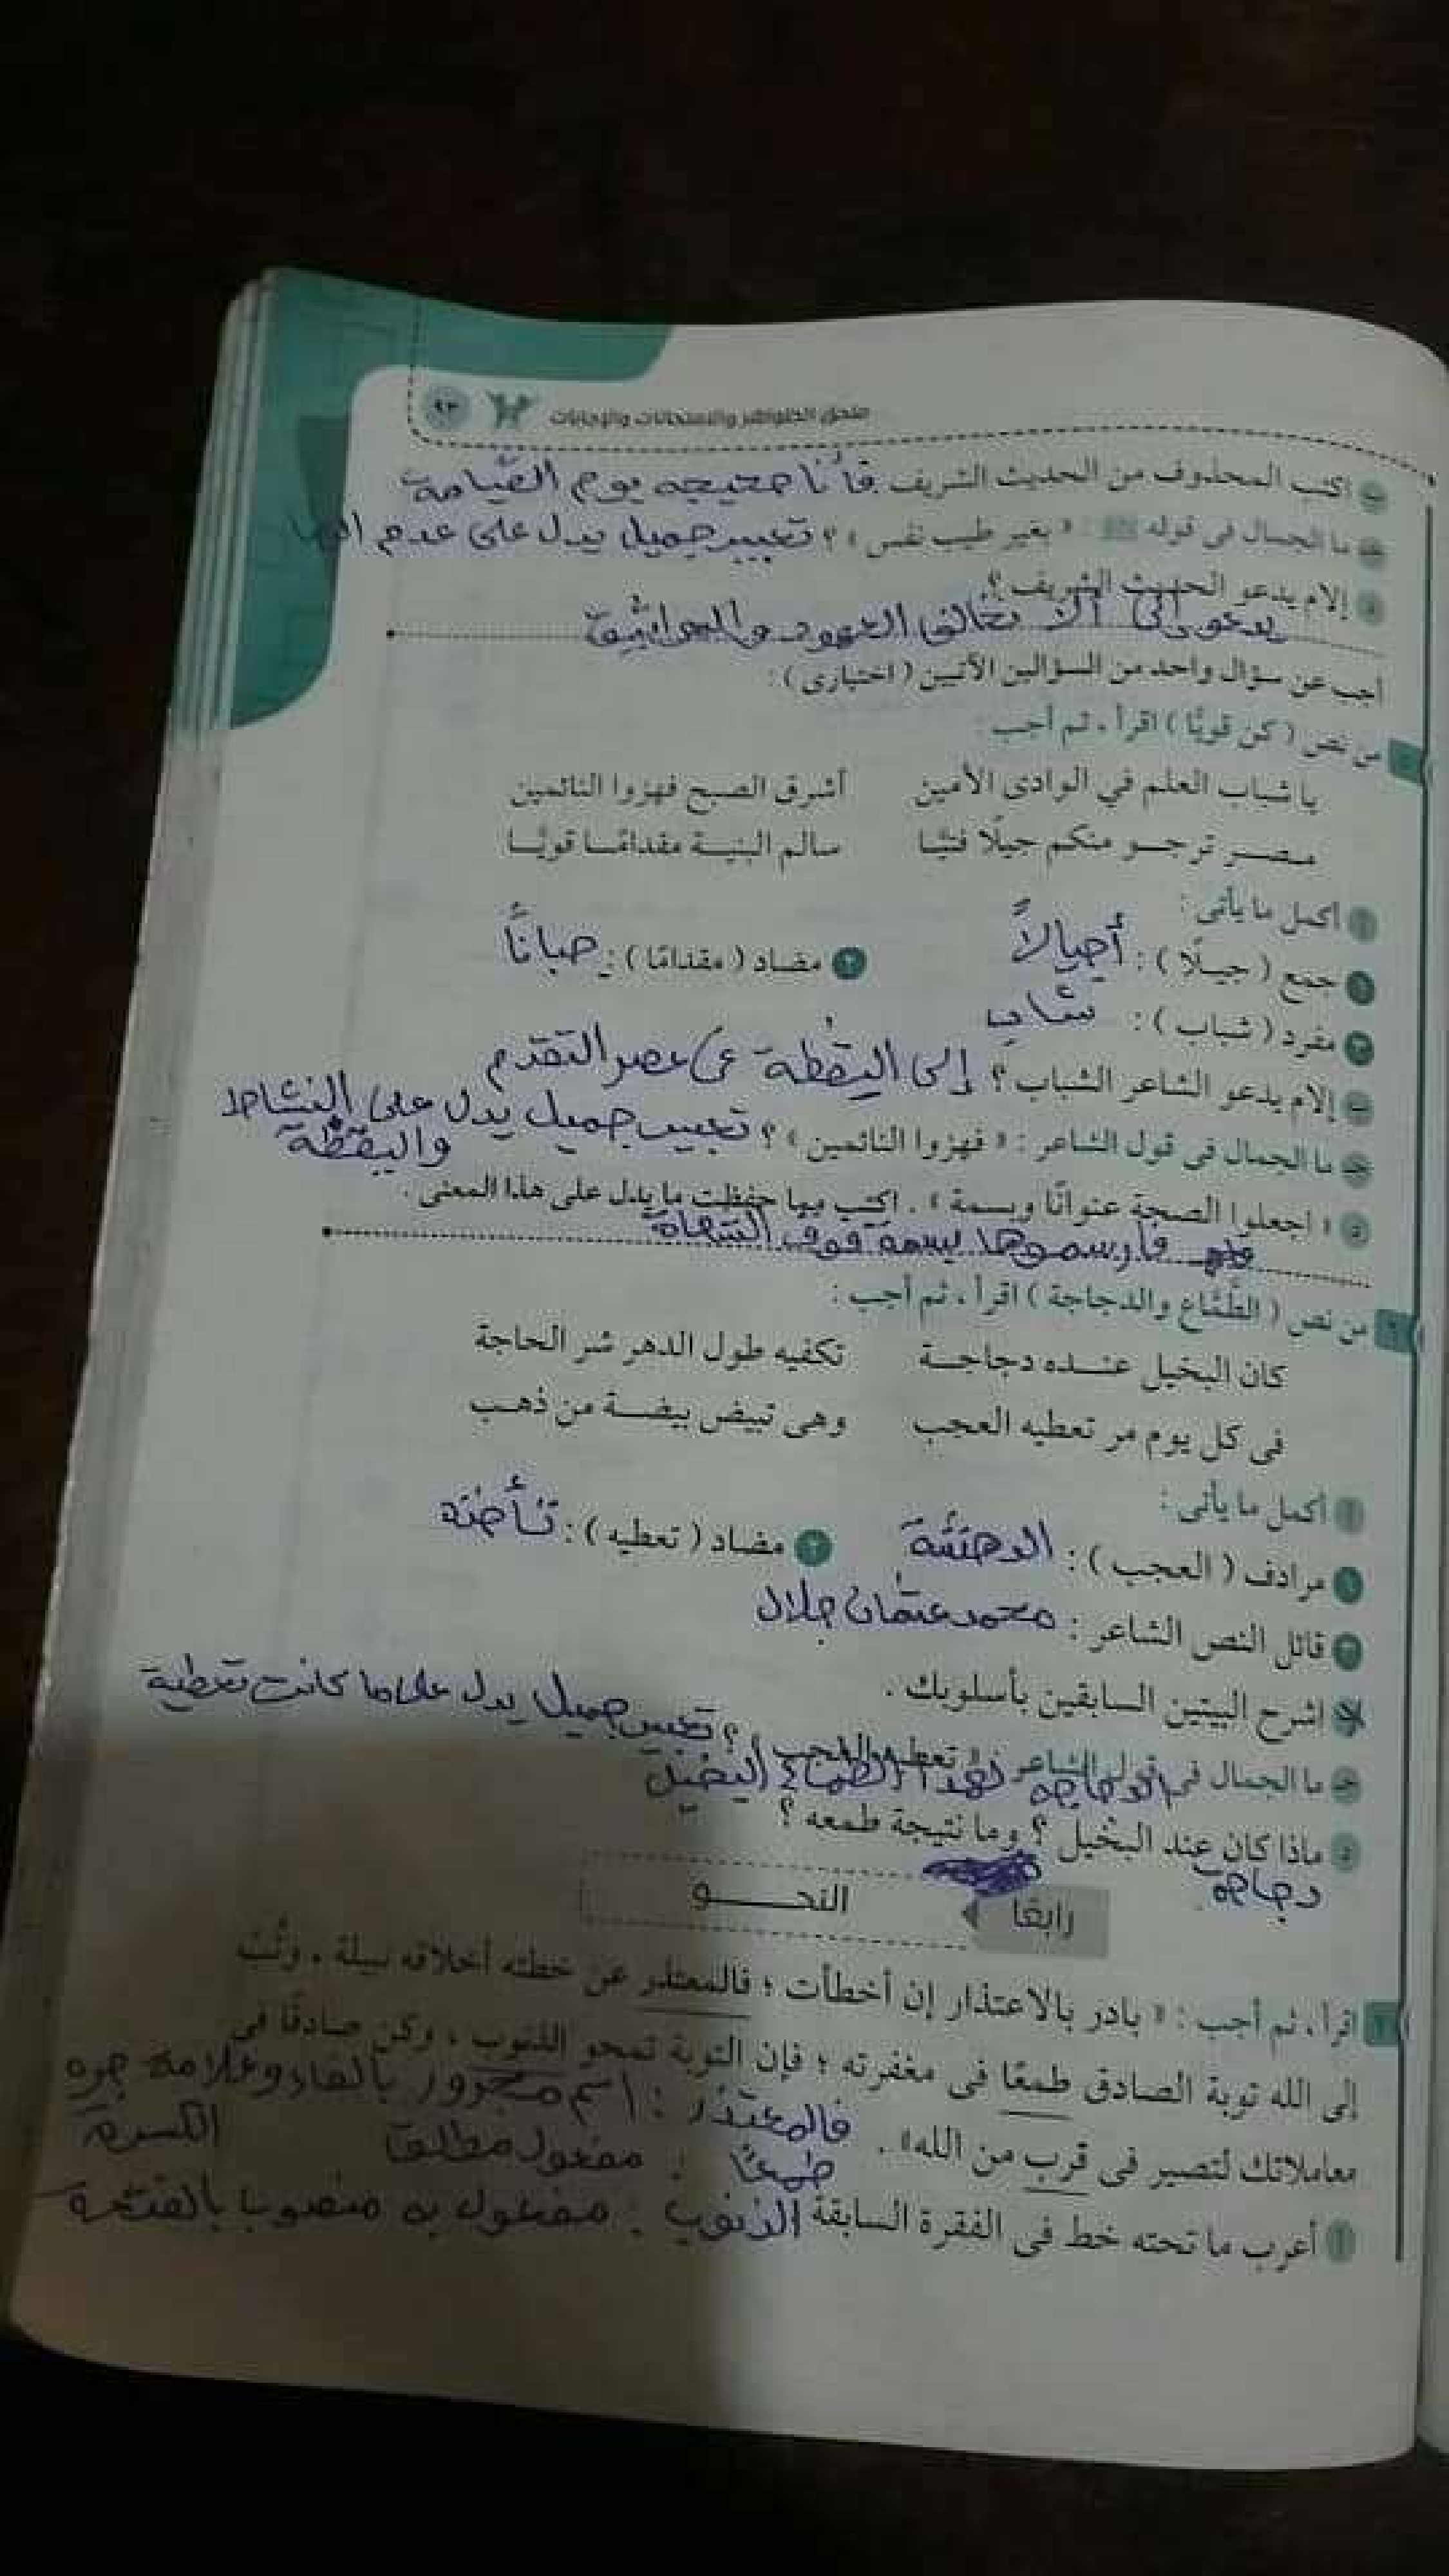 ملحق الظواهر والامتحانات والإجابات ٩٣
ب اكتب المحذوف من الحديث الشريف فأنا حجيجه يوم القيامة
جـ ما الجمال فى قوله ﷺ : « بغير طيب نفس » ؟ تعبير جميل يدل على عدم
د إلام يدعو الحديث الشريف ؟
يدعو إلى ألا نخالف العهود والمواثيق
أجب عن سؤال واحد من السؤالين الآتيين ( اختيارى ) :
من نص ( كن قويًّا ) اقرأ ، ثم أجب :
يا شباب العلم في الوادى الأمين أشرق الصبح فهزوا النائمين
مصر ترجو منكم جيلًا فتيًّا سالم البنية مقدامًا قويًّا
أ أكمل ما يأتى :
١ جمع ( جيلًا ) : أجيالاً ٢ مضاد ( مقدامًا ) : جباناً
٣ مفرد ( شباب ) : شاب
ب إلام يدعو الشاعر الشباب ؟ إلى اليقظة فى عصر التقدم
جـ ما الجمال فى قول الشاعر : « فهزوا النائمين » ؟ تعبير جميل يدل على النشاط
واليقظة
د « اجعلوا الصحة عنوانًا وبسمة » . اكتب مما حفظت ما يدل على هذا المعنى .
فارسموها بسمة فوق الشفاة
٢ من نص ( الطَّمَّاع والدجاجة ) اقرأ ، ثم أجب :
كان البخيل عنده دجاجة تكفيه طول الدهر شر الحاجة
فى كل يوم مر تعطيه العجب وهى تبيض بيضة من ذهب
أ أكمل ما يأتى :
١ مرادف ( العجب ) : الدهشة ٢ مضاد ( تعطيه ) : تأخذه
٣ قائل النص الشاعر : محمد عثمان جلال
اشرح البيتين السابقين بأسلوبك .
جـ ما الجمال فى قول الشاعر : « تعطيه العجب » ؟ تعبير جميل يدل على ما كانت تعطية
الدجاجه لهذا الطماع البخيل
د ماذا كان عند البخيل ؟ وما نتيجة طمعه ؟
دجاجة
رابعًا النحو
١ اقرأ ، ثم أجب : « بادر بالاعتذار إن أخطأت ؛ فالمعتذر عن خطئه أخلاقه نبيلة ، وتُبْ
إلى الله توبة الصادق طمعًا فى مغفرته ؛ فإن التوبة تمحو الذنوب ، وكن صادقًا فى
معاملاتك لتصير فى قرب من الله» .
فالمعتذر : اسم مجرور بالفاء وعلامة جره
الكسرة
طمعًا : مفعول مطلق
أ أعرب ما تحته خط فى الفقرة السابقة الذنوب : مفعول به منصوب بالفتحة